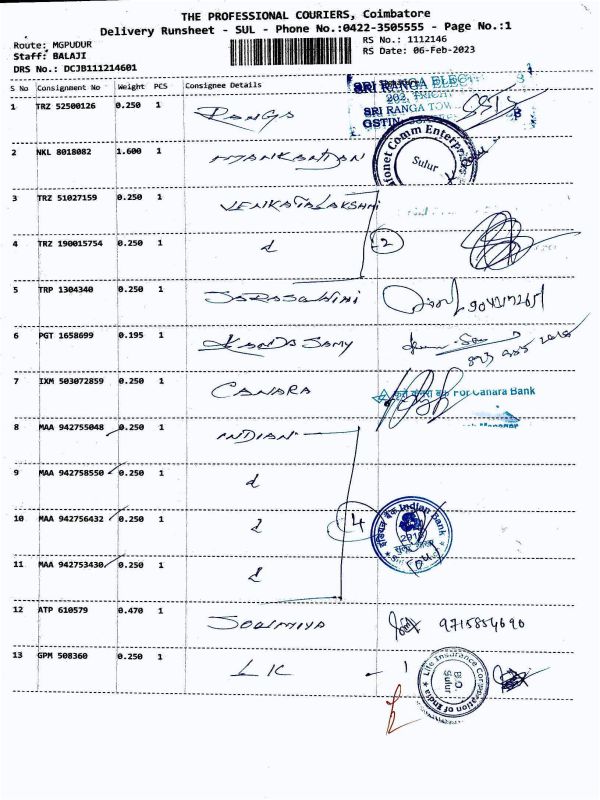 THE PROFESSIONAL COURIERS, Coimbatore
Delivery Runsheet - SUL - Phone No.:0422-3505555 - Page No.:1
Route: MGPUDUR
RS No.: 1112146
Staff: BALAJI
RS Date: 06-Feb-2023
DRS No.: DCJB111214601
S No Consignment No Weight PCS Consignee Details
1 TRZ 52500126 0.250 1 RANGA
SRI RANGA ELECT
SRI RANGA TOW
GSTIN:
2 NKL 8018082 1.600 1 MANIKANDAN
Comm Enterpris
Sulur
3 TRZ 51027159 0.250 1 VENKATALAKSHMI
4 TRZ 190015754 0.250 1 2
5 TRP 1304340 0.250 1 SARASWATHI
6 PGT 1658699 0.195 1 KANDASAMY
7 IXM 503072859 0.250 1 CANARA
For Canara Bank
Manager
8 MAA 942755048 0.250 1 INDIAN
9 MAA 942758550 0.250 1
10 MAA 942756432 0.250 1 4
इंडियन बैंक Indian Bank
11 MAA 942753430 0.250 1
12 ATP 610579 0.470 1 SOWMIYA 9715854690
13 GPM 508360 0.250 1 LIC - 1
Life Insurance Corporation of India
B.O.
Sulur